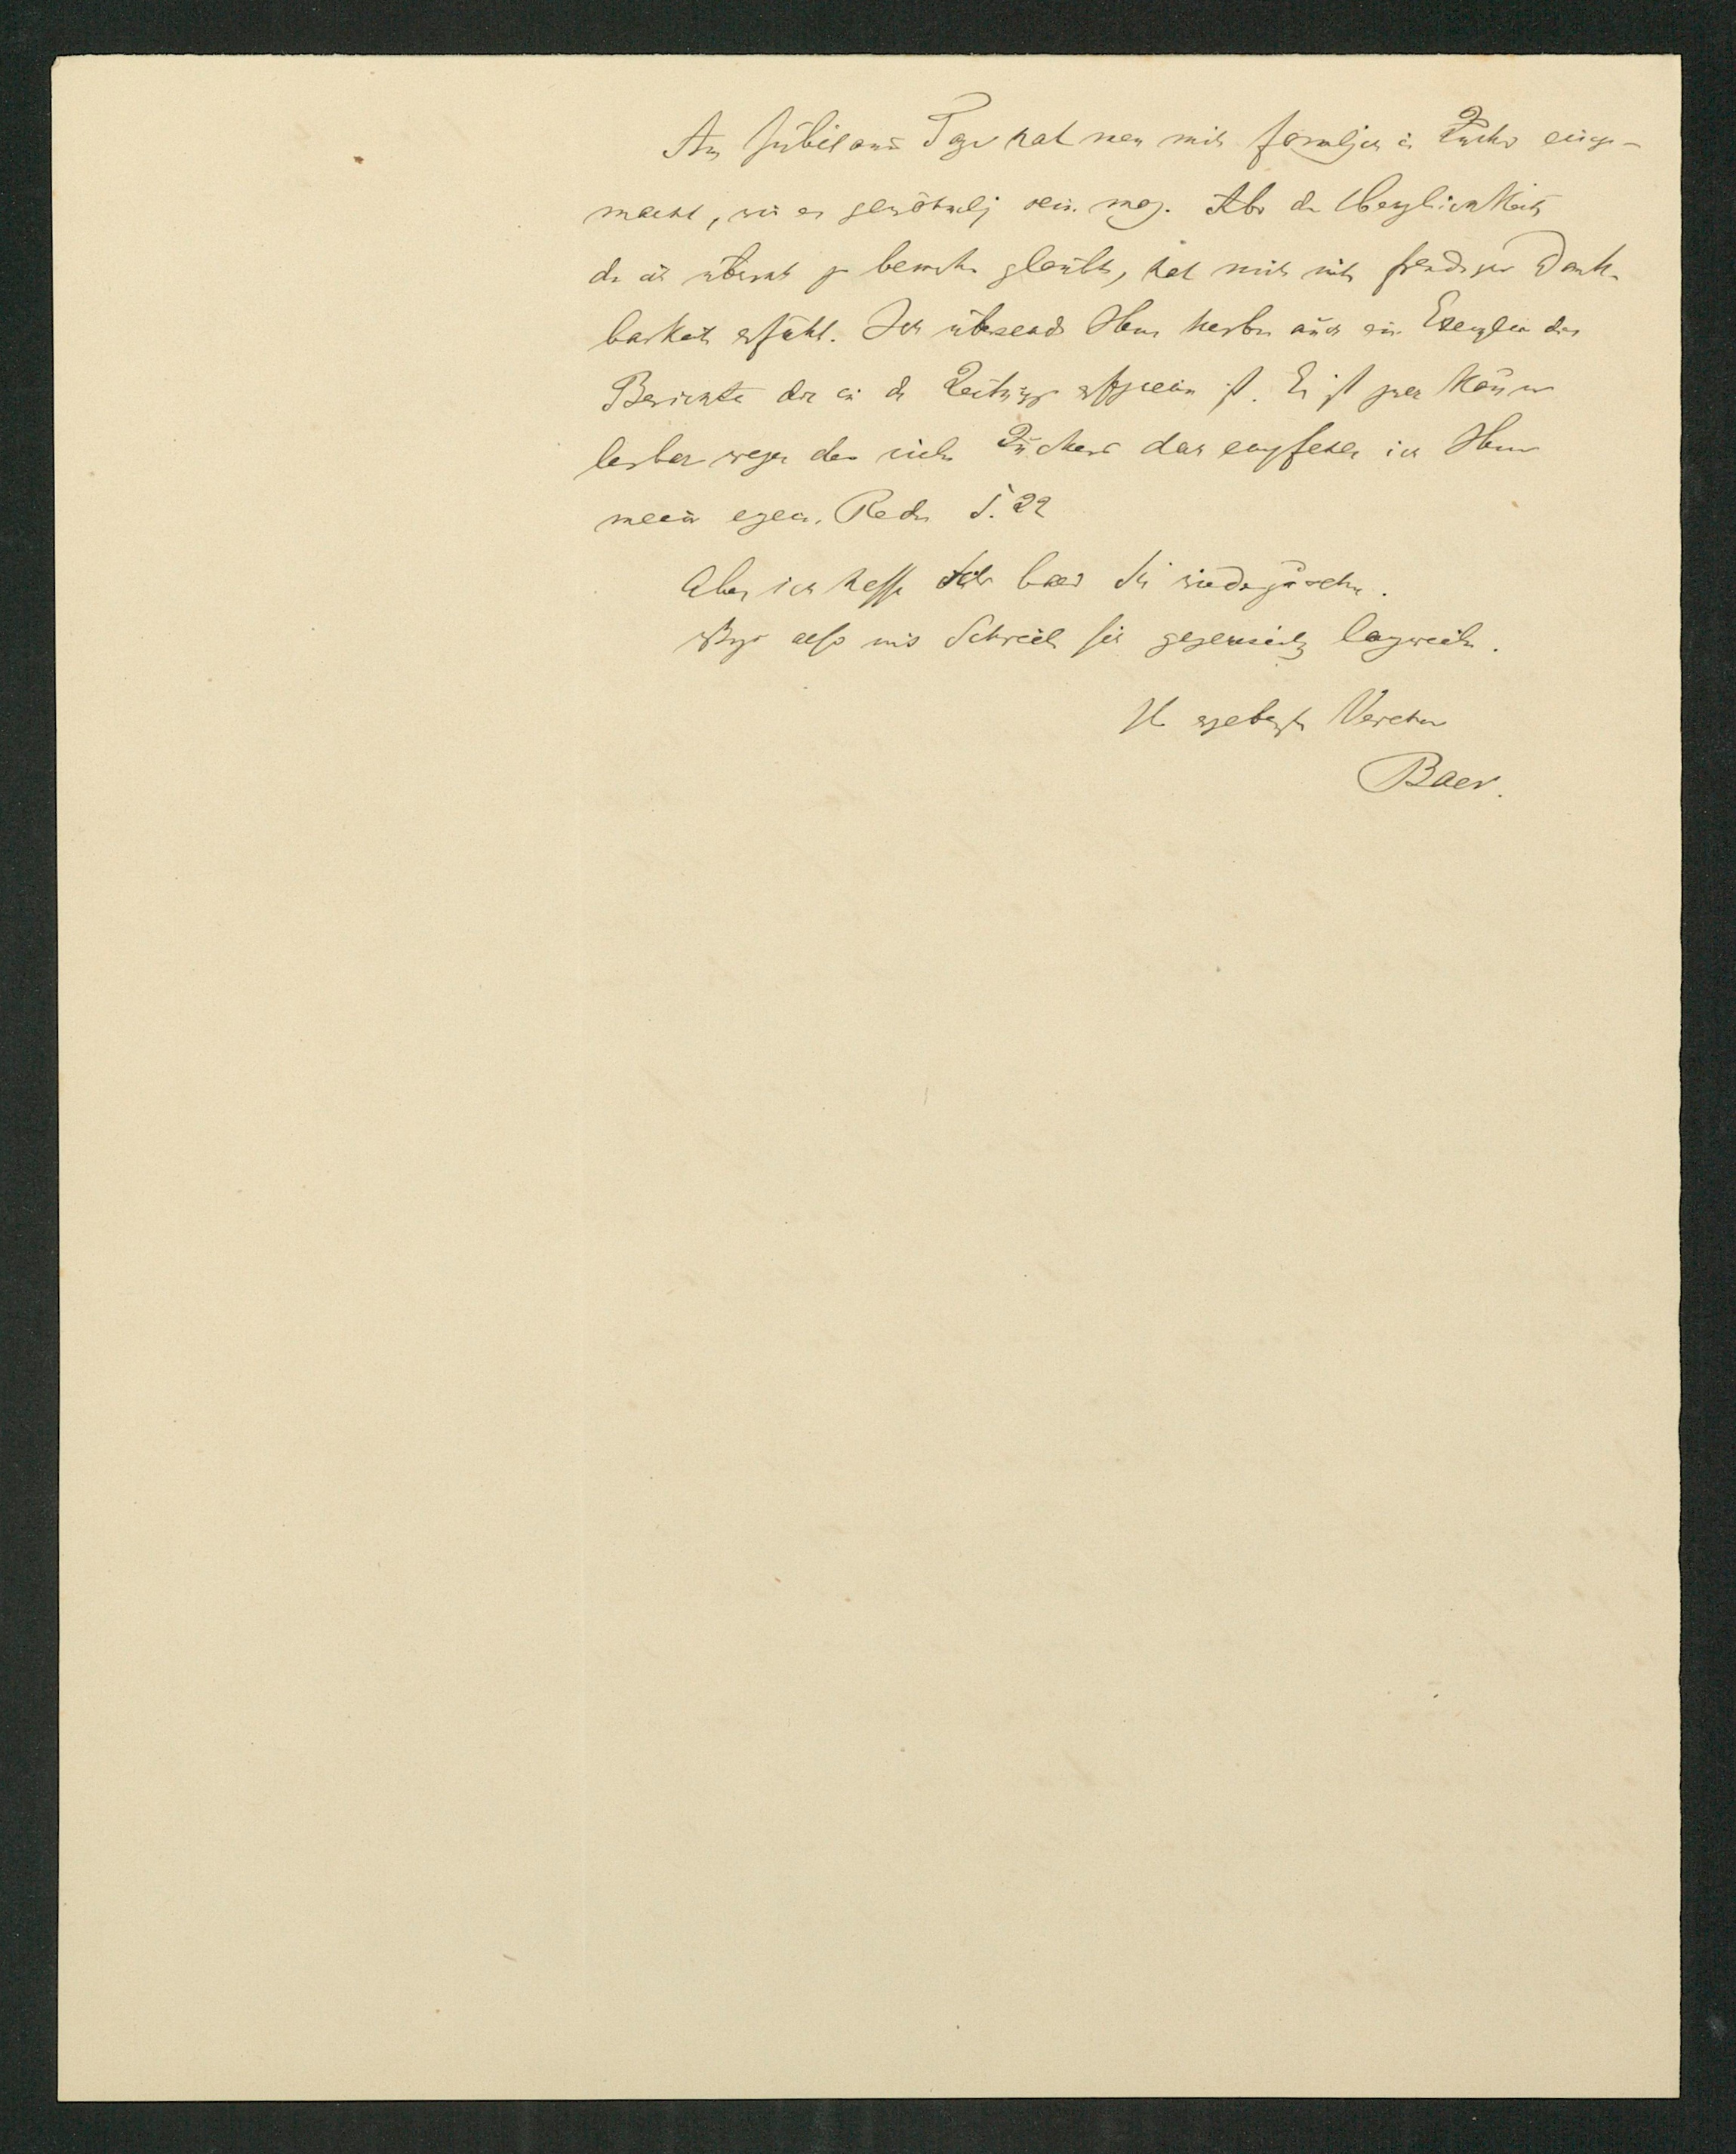 Am Jubiläums Tage hat man mich förmlich in Zucker einge-
macht, wie es gewöhnlich sein mag. Aber die Herzlichkeit,
die ich überall zu bemerken glaubte, hat mich mit freudiger Dank-
barkeit erfüllt. Ich übersende Ihnen hierbei auch ein Exemplar des
Berichtes der in der Zeitung erschienen ist. Er ist zwar kaum
lesbar wegen des vielen Zuckers doch empfehle ich Ihnen
meine eigene Rede S. 22
Aber ich hoffe bald Sie wiederzusehen.
also mit Schreiben sich gegenseitig langweilen.
Ihr ergebenster Verehrer
Baer.